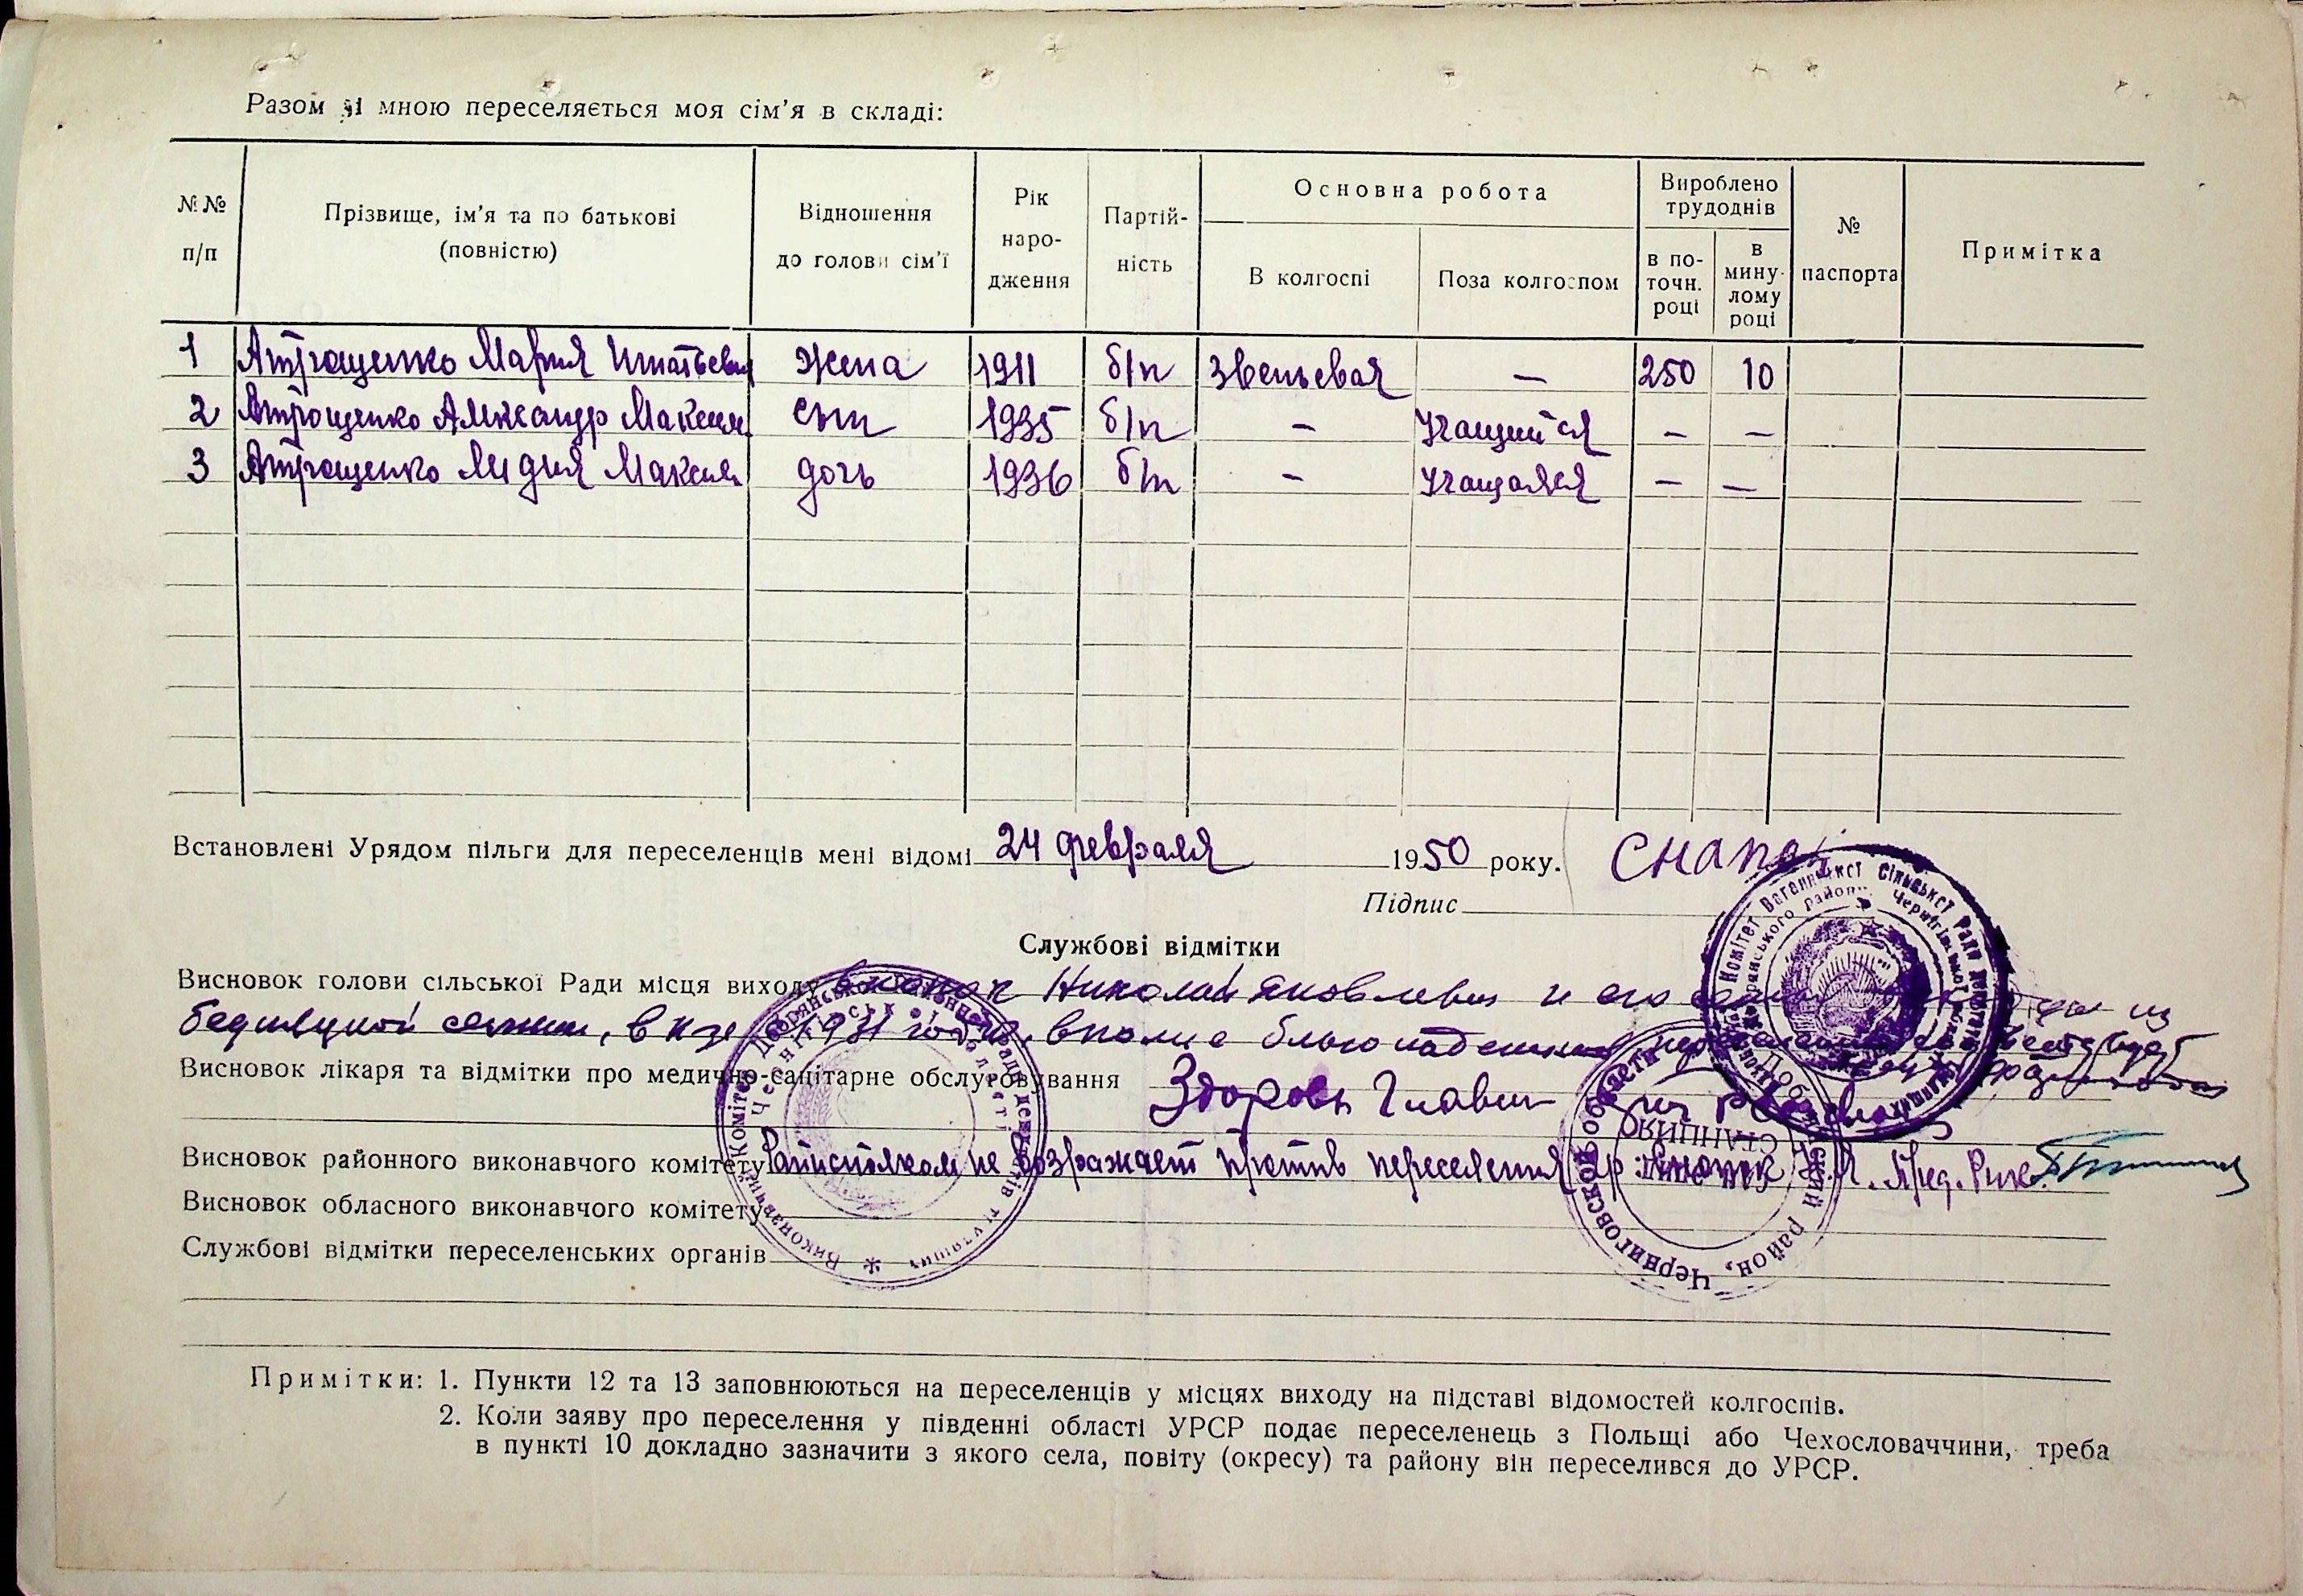 Разом зі мною переселяється моя сім'я в складі:
№№ п/п
Прізвище, ім'я та по батькові (повністю)
Відношення до голови сім'ї
Рік наро-дження
Партій-ність
Основна робота
В колгоспі
Поза колгоспом
Вироблено трудоднів
в по-точн. році
в мину-лому році
№ паспорта
Примітка
1 Атрощенко Мария Игнатьевна жена 1911 б/п Звеньевая — 250 10
2 Атрощенко Александр Максим. сын 1935 б/п — Учащийся — —
3 Атрощенко Лидия Максим дочь 1936 б/п — Учащаяся — —
Встановлені Урядом пільги для переселенців мені відомі 24 февраля 1950 року.
Підпис
Службові відмітки
Висновок голови сільської Ради місця виходу Николай Яковлевич и его из
бедняцкой семьи, в 1931 вполне
Висновок лікаря та відмітки про медично-санітарне обслуговування Здоровы Главн
Висновок районного виконавчого комітету Райисполком не возражает против переселения гр. Н.Я. Пред. Рик.
Висновок обласного виконавчого комітету
Службові відмітки переселенських органів
Примітки: 1. Пункти 12 та 13 заповнюються на переселенців у місцях виходу на підставі відомостей колгоспів.
2. Коли заяву про переселення у південні області УРСР подає переселенець з Польщі або Чехословаччини, треба
в пункті 10 докладно зазначити з якого села, повіту (окресу) та району він переселився до УРСР.